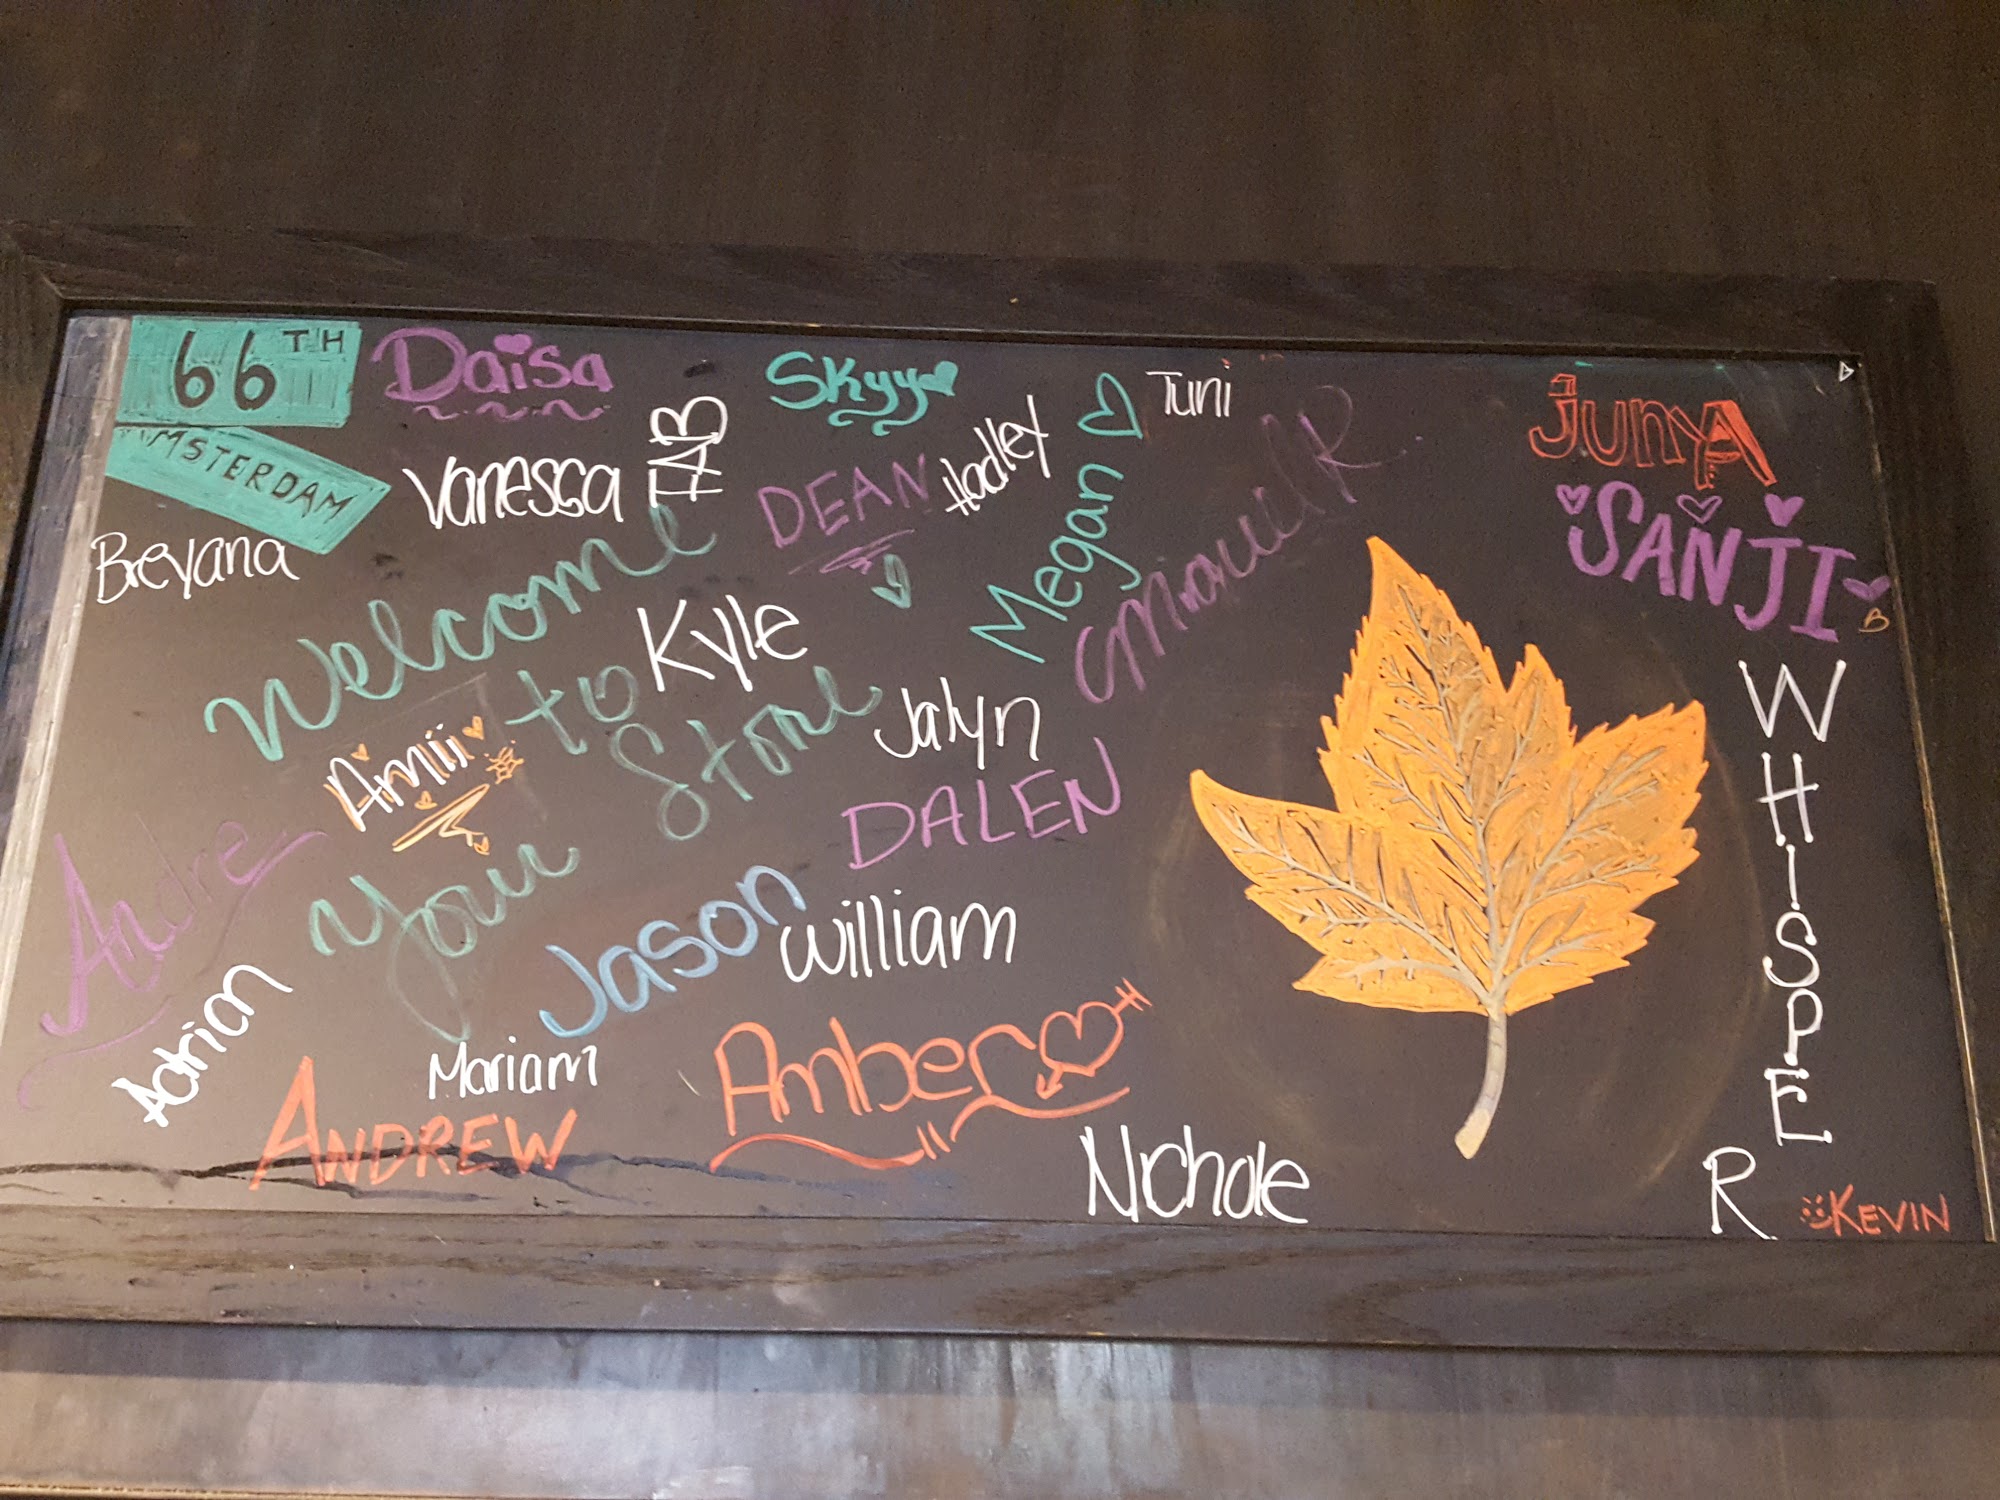 66TH
AMSTERDAM
Daisa
Skyy
Tuni
Junya
Vanessa
TAB
DEAN
Hadley
Megan
SANJI
Breyana
Welcome
to
Your Store
Kyle
Amiii
Jalyn
DALEN
WHISPER
Andre
Jason
William
Adrian
Mariam
Amber
ANDREW
Nichole
KEVIN